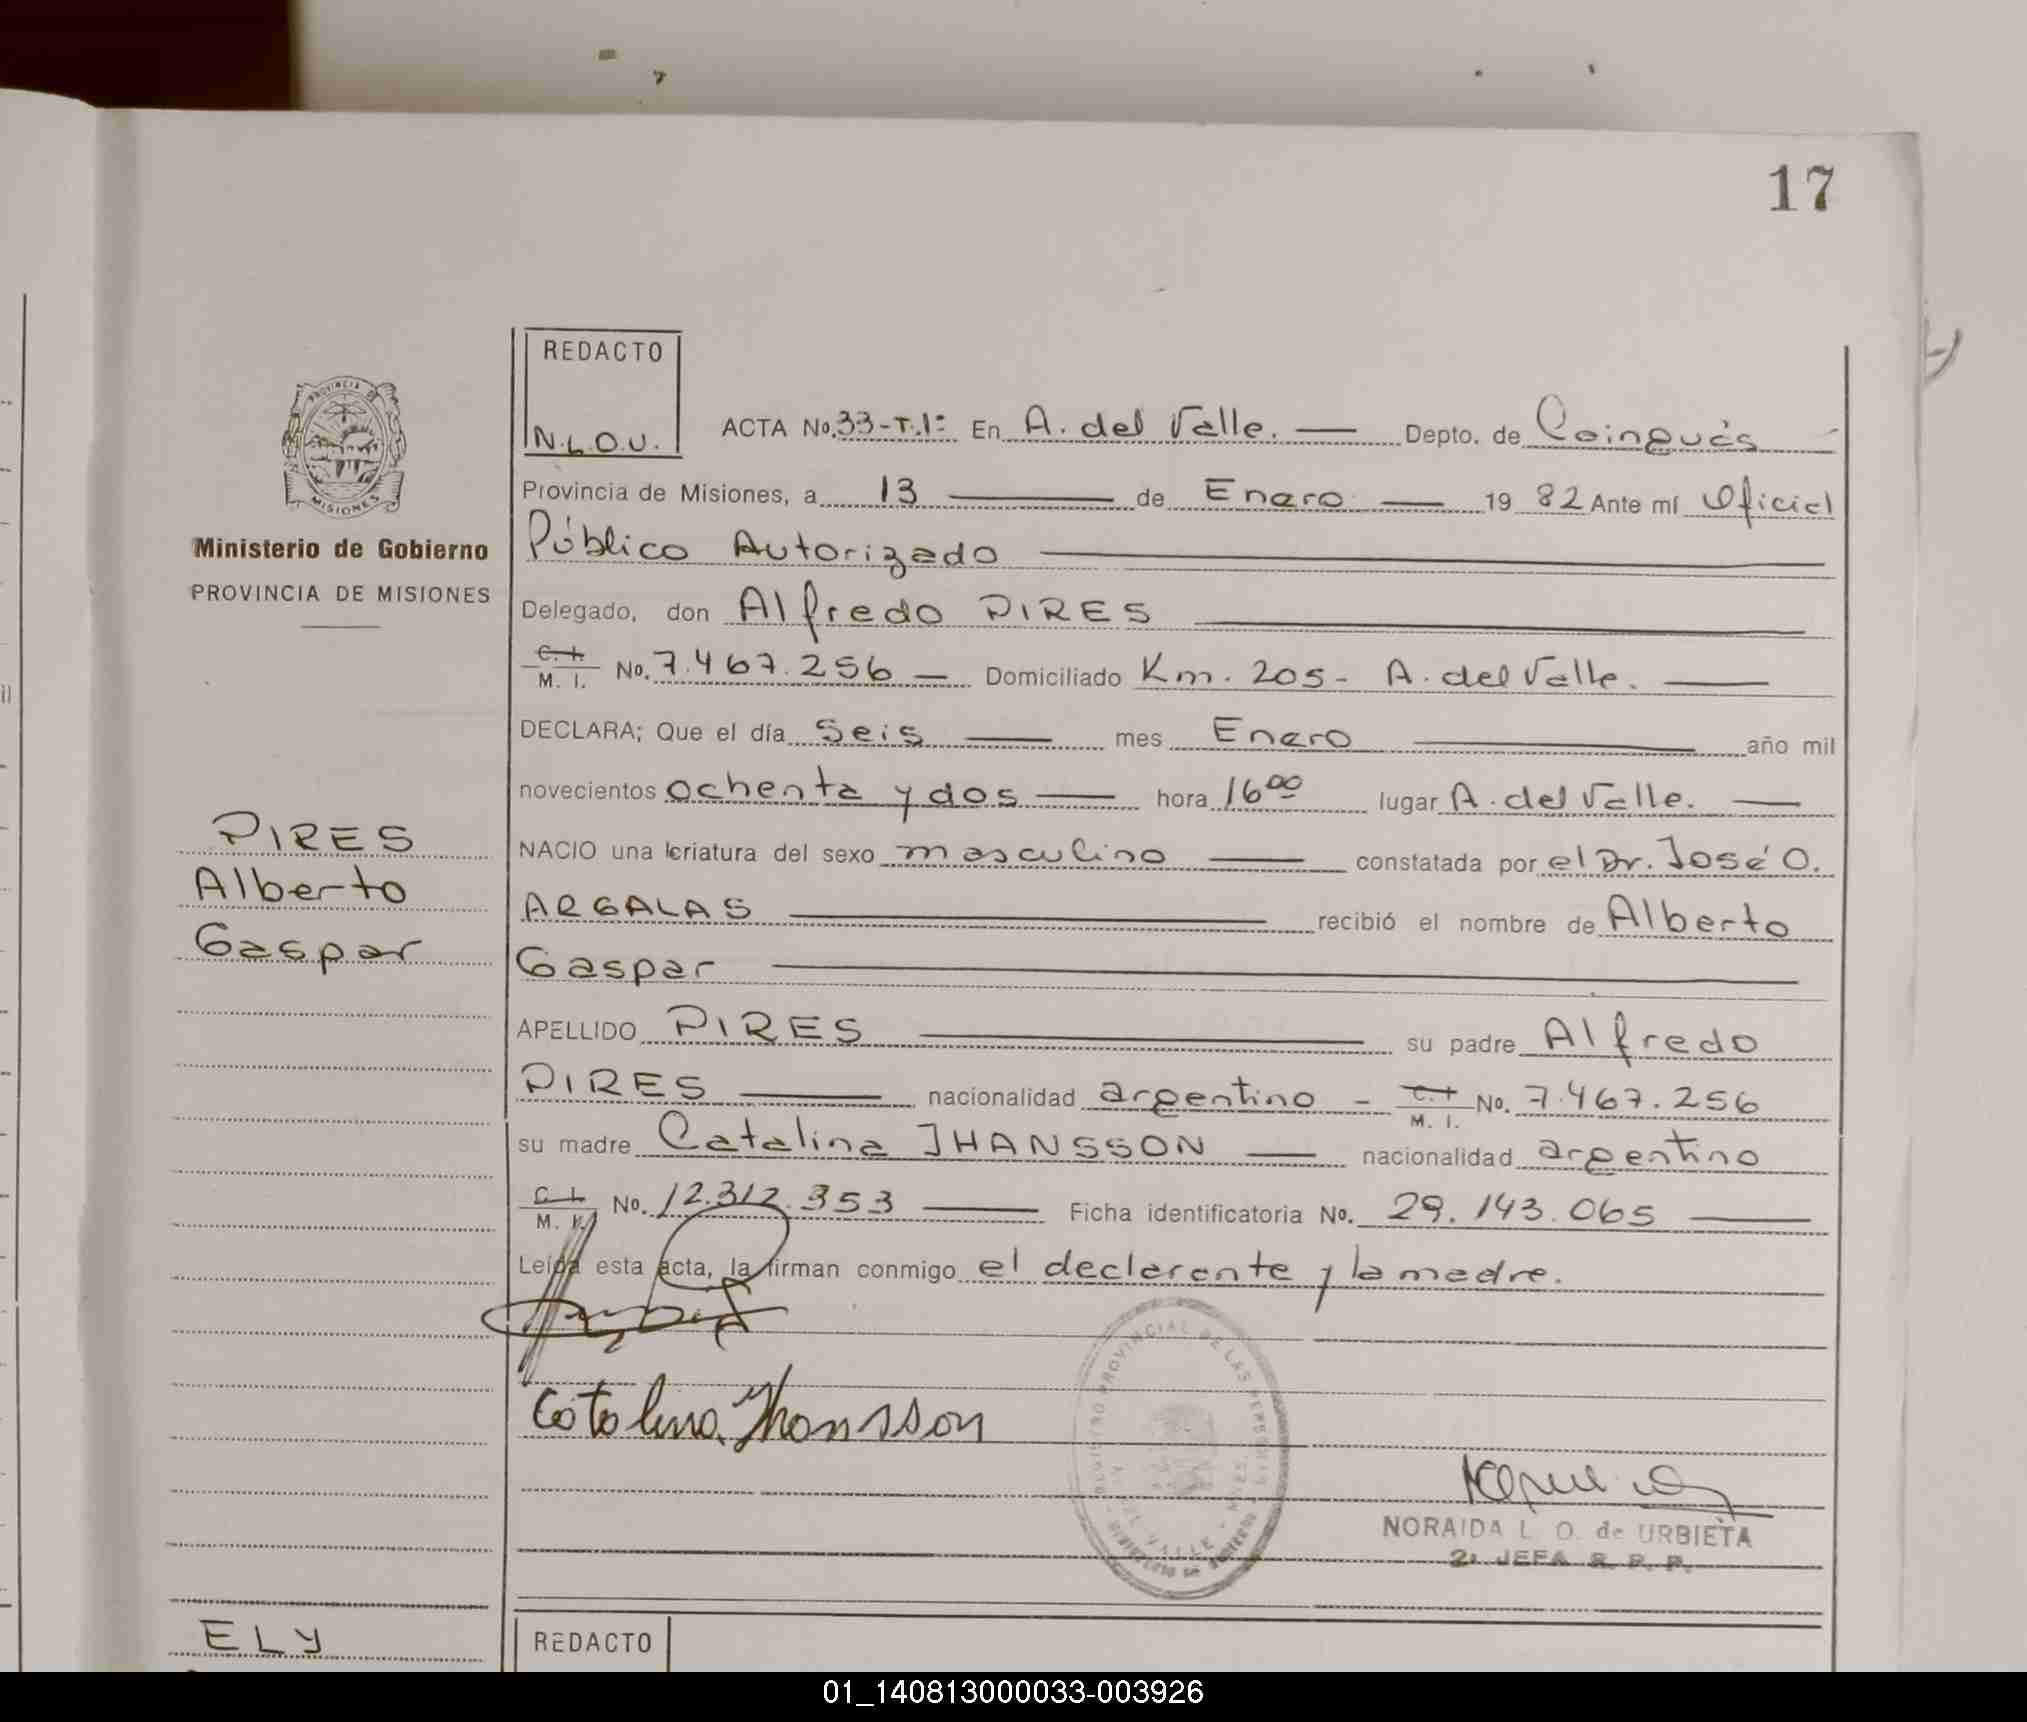 17
REDACTO
N.L.O.U.
ACTA No. 33-T.1º En A. del Valle. Depto. de Cainguás
Provincia de Misiones, a 13 de Enero 1982 Ante mí Oficial
Público Autorizado
Delegado, don Alfredo PIRES
C. I. M. I. No. 7.467.256 Domiciliado Km. 205- A. del Valle.
DECLARA; Que el día Seis mes Enero año mil
novecientos ochenta y dos hora 16 00 lugar A. del Valle.
NACIO una criatura del sexo masculino constatada por el Dr. José O.
ARGALAS recibió el nombre de Alberto
Gaspar
APELLIDO PIRES su padre Alfredo
PIRES nacionalidad argentino - C. I. M. I. No. 7.467.256
su madre Catalina JHANSSON nacionalidad argentino
C. I. M. I. No. 12.312.353 Ficha identificatoria No. 29.143.065
Leída esta acta, la firman conmigo el declarante y la madre.
Catalina Jhansson
NORAIDA L. O. de URBIETA
2ª JEFA R. P. P.
REGISTRO PROVINCIAL DE LAS PERSONAS
DEL VALLE - MNES.
MINISTERIO DE GOBIERNO
PROVINCIA DE
MISIONES
Ministerio de Gobierno
PROVINCIA DE MISIONES
PIRES
Alberto
Gaspar
ELY
REDACTO
01_140813000033-003926